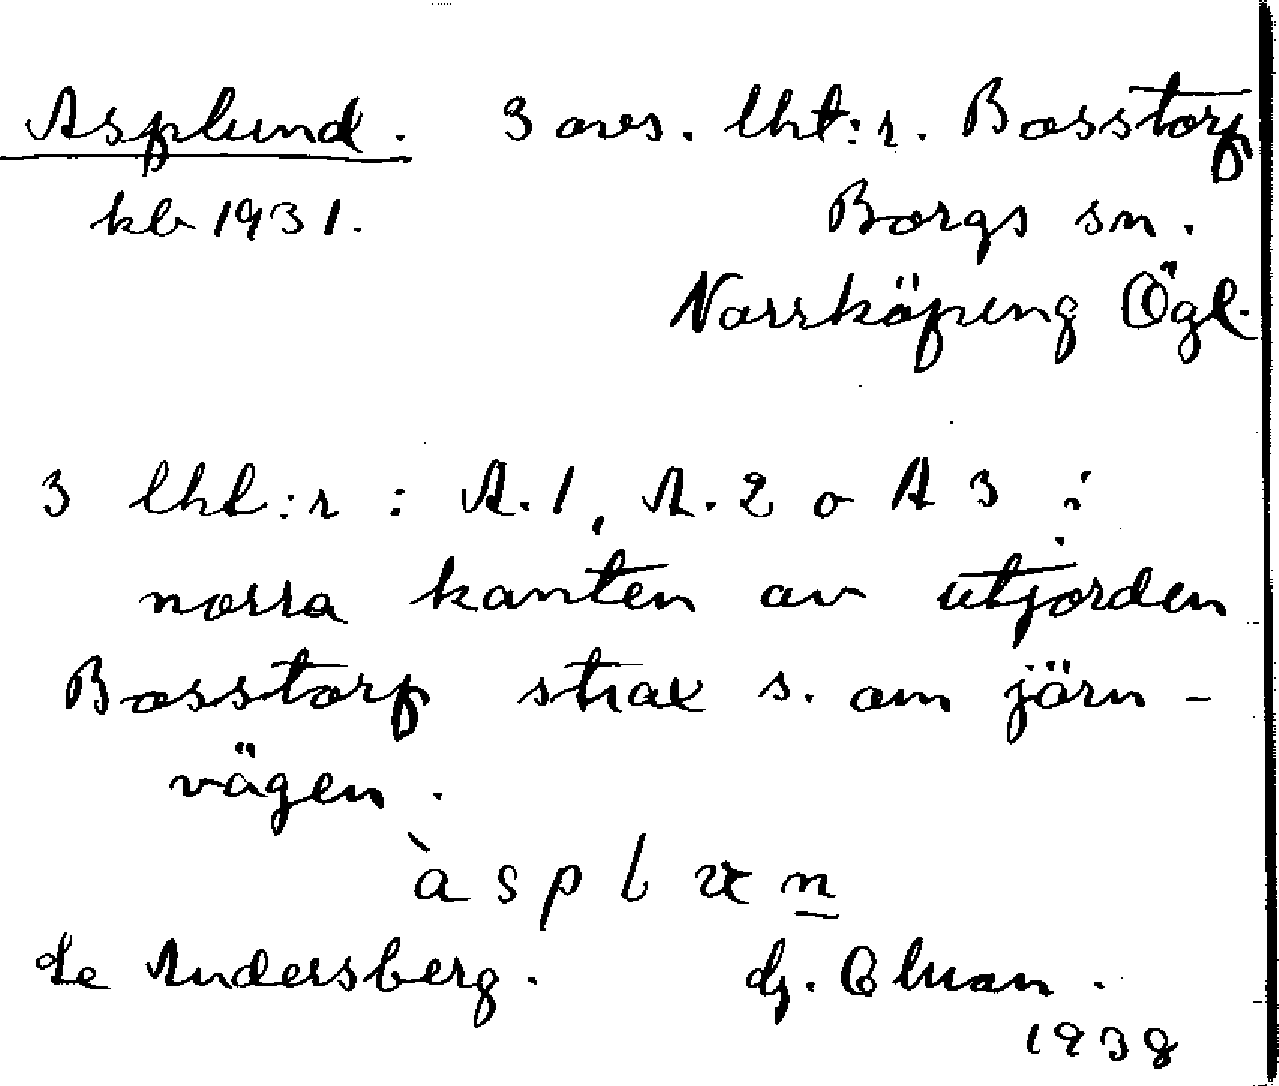 Asplund. 3 avs. lht:r. Bosstorp
kb 1931. Borgs sn.
Norrköping Ögl.
3 lht:r : A.1, A.2 o A 3 i
norra kanten av utjorden
Bosstorp strax s. om järn-
vägen.
à s p l u n
Se Andersberg. dj.
1938